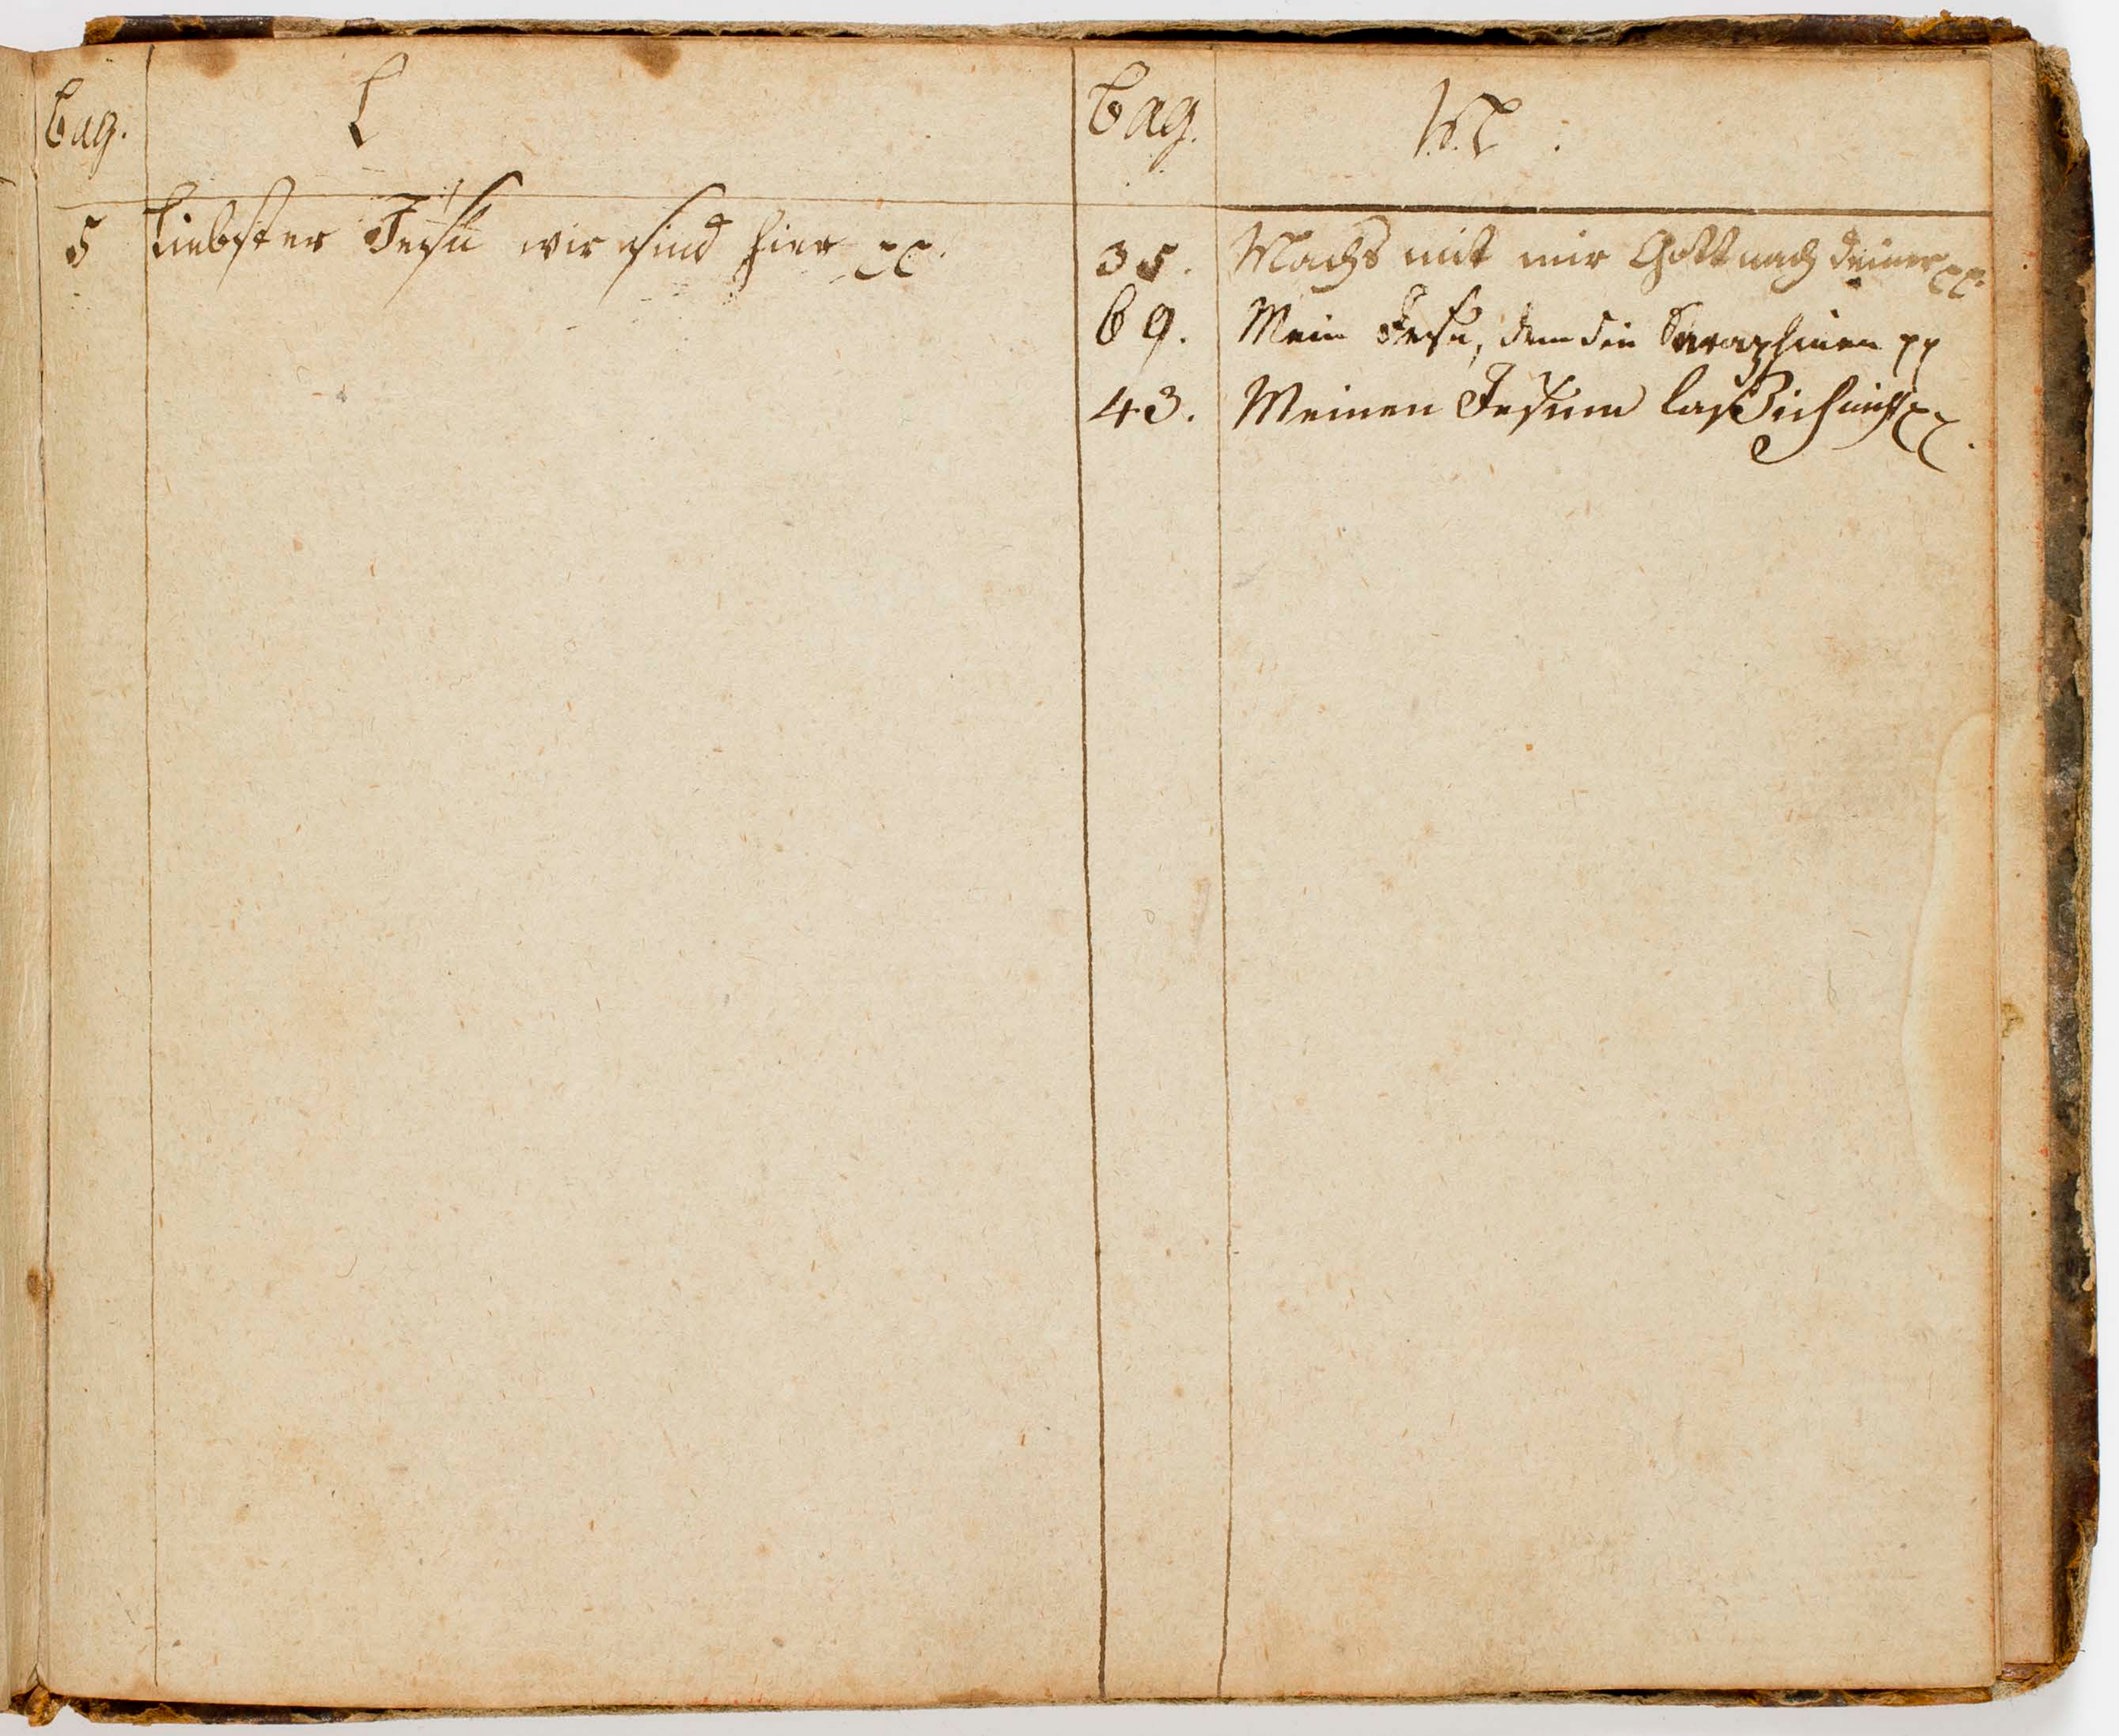 Pag.
L
5 Liebster Jesu wir sind hier pp.
Pag.
M.
35. Machs mit mir Gott nach deiner pp.
69. Mein Jesu, dem die Seraphinen pp
43. Meinen Jesum laß ich nicht pp.